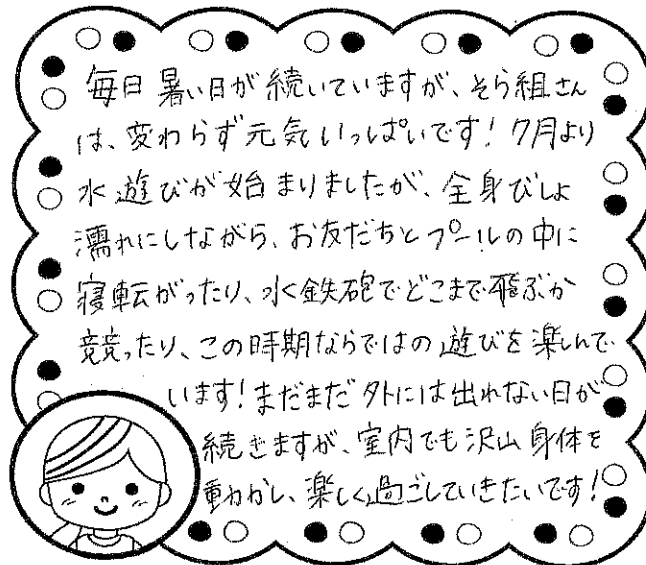 毎日暑い日が続いていますが、そら組さん
は、変わらず元気いっぱいです！7月より
水遊びが始まりましたが、全身びしょ
濡れにしながら、お友だちとプールの中に
寝転がったり、水鉄砲でどこまで飛ぶか
競ったり、この時期ならではの遊びを楽しんで
います！まだまだ外には出れない日が
続きますが、室内でも沢山身体を
動かし、楽しく過ごしていきたいです！